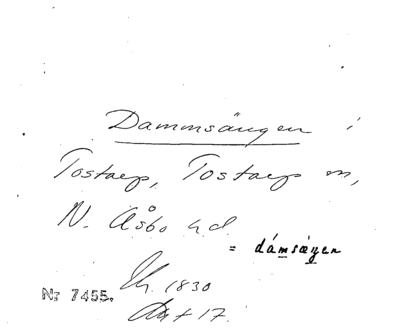 Dammsängen i
Tostarp, Tostarp sn,
N. Åsbo hd.
= dámsägen
Nr 7455.
1830
Akt 17.